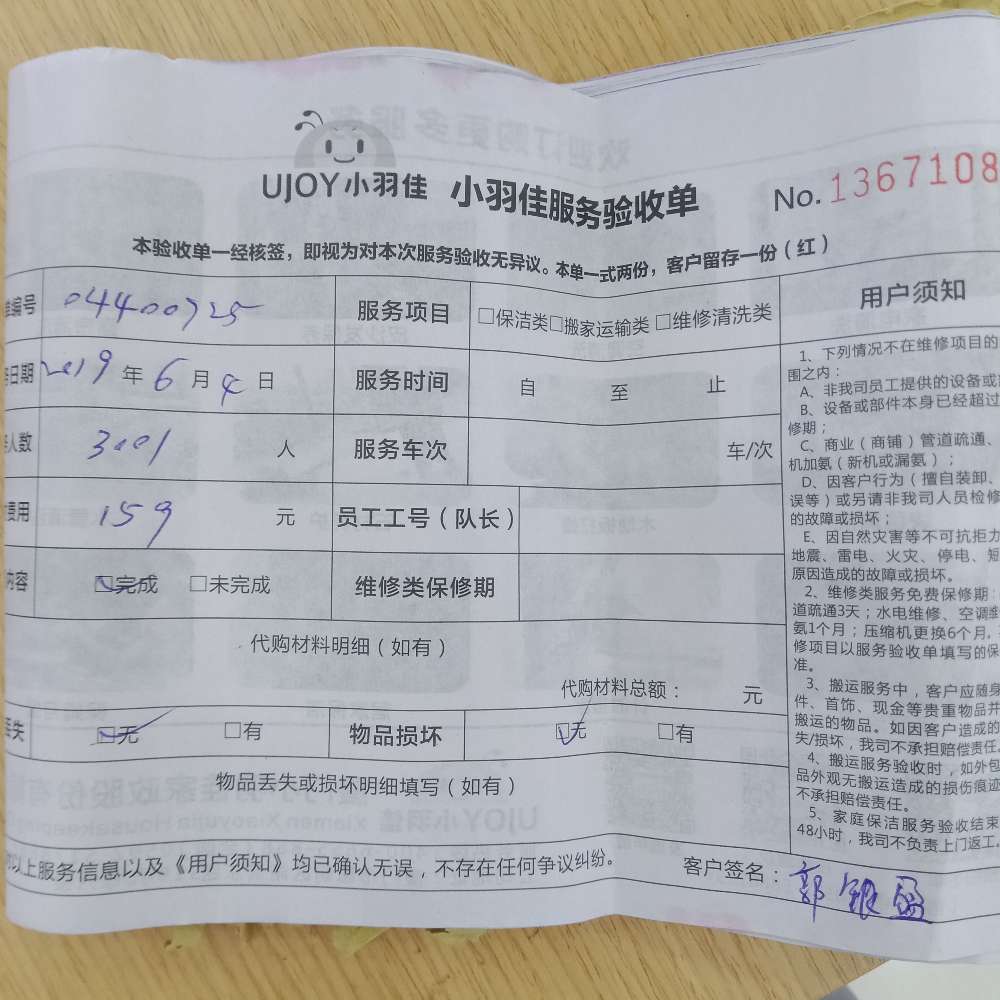 UJOY小羽佳 小羽佳服务验收单 No.1367108
本验收单一经核签，即视为对本次服务验收无异议。本单一式两份，客户留存一份（红）
编号 04400725 服务项目 □保洁类□搬家运输类 □维修清洗类
日期 2019年6月4日 服务时间 自 至 止
人数 3001 人 服务车次 车/次
费用 159 元 员工工号（队长）
内容 □完成 □未完成 维修类保修期
代购材料明细（如有）
代购材料总额： 元
丢失 □无 □有 物品损坏 □无 □有
物品丢失或损坏明细填写（如有）
以上服务信息以及《用户须知》均已确认无误，不存在任何争议纠纷。 客户签名：郭银盈
用户须知
1、下列情况不在维修项目的
围之内：
A、非我司员工提供的设备或
B、设备或部件本身已经超过
修期；
C、商业（商铺）管道疏通、
机加氨（新机或漏氨）；
D、因客户行为（擅自装卸、
误等）或另请非我司人员检修
的故障或损坏；
E、因自然灾害等不可抗拒力
地震、雷电、火灾、停电、短
原因造成的故障或损坏。
2、维修类服务免费保修期：
道疏通3天；水电维修、空调
氨1个月；压缩机更换6个月.
修项目以服务验收单填写的保
准。
3、搬运服务中，客户应随身
件、首饰、现金等贵重物品并
搬运的物品。如因客户造成的
失/损坏，我司不承担赔偿责任。
4、搬运服务验收时，如外包
品外观无搬运造成的损伤痕迹
不承担赔偿责任。
5、家庭保洁服务验收结束
48小时，我司不负责上门返工。